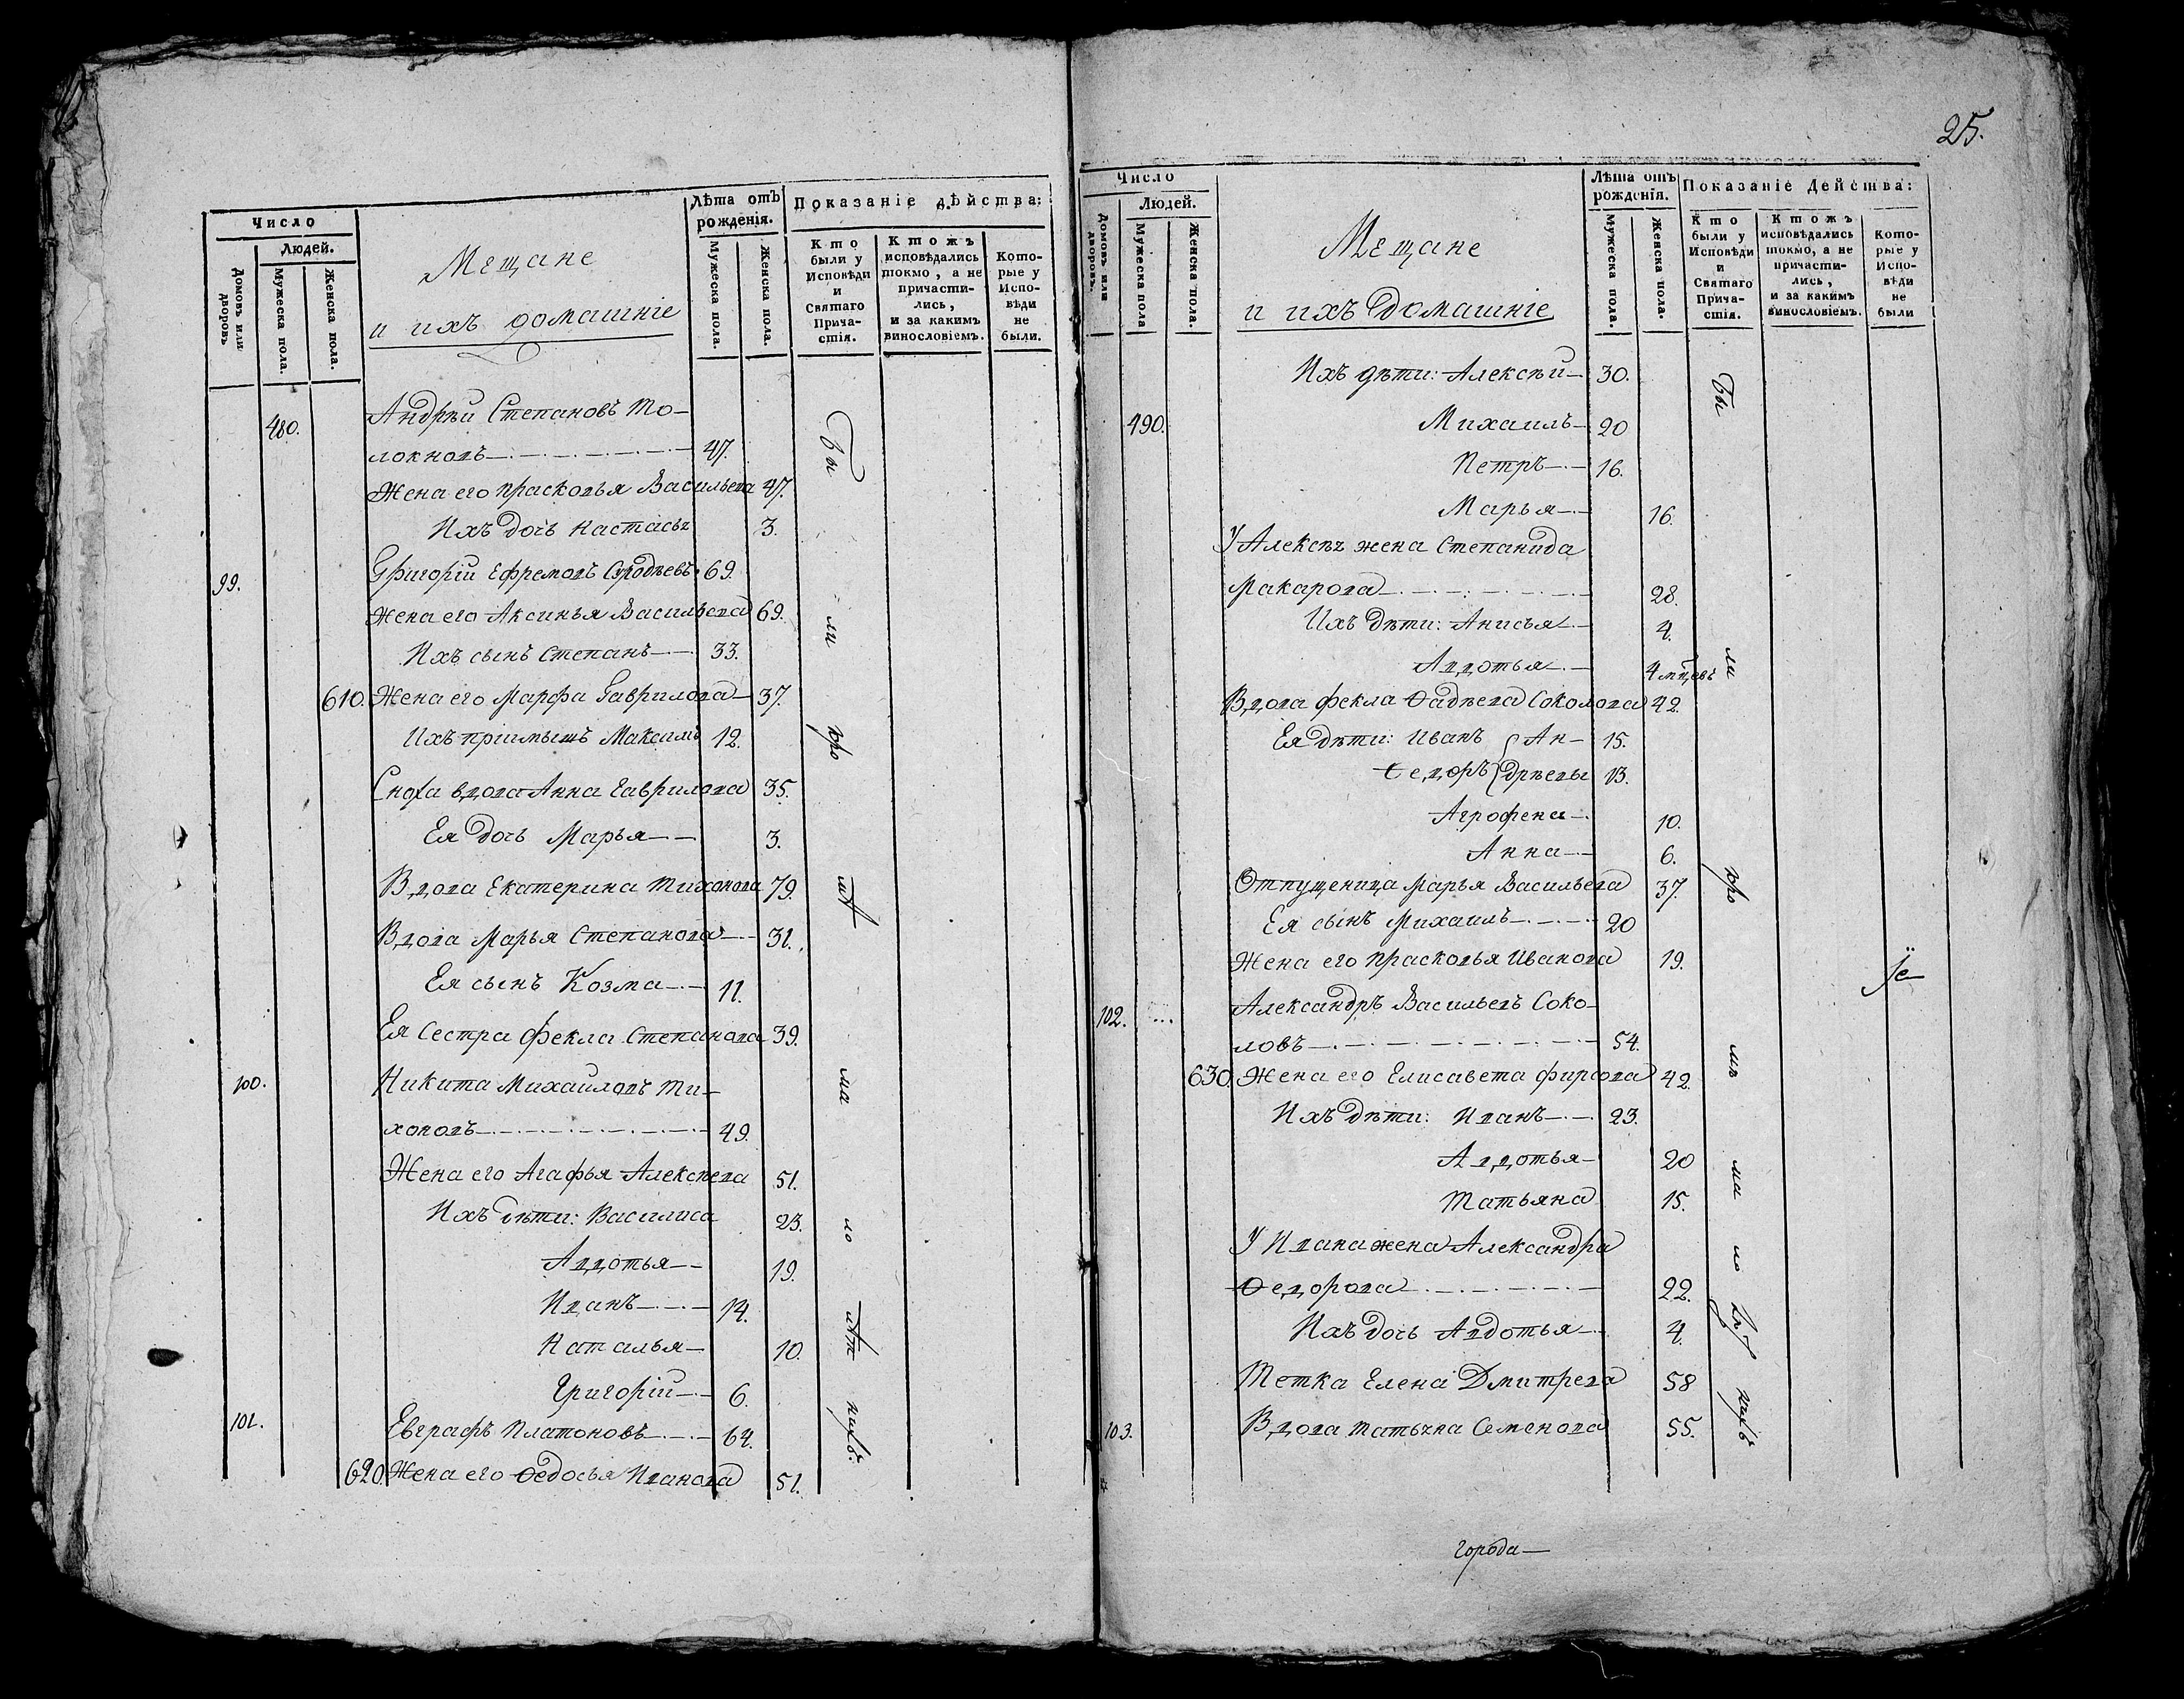 Число
Людей.
Домовъ или дворовъ
Мужеска пола.
Женска пола.
Мещане
и ихъ домашніе
Лѣта отъ рожденія.
Мужеска пола.
Женска пола.
Показаніе дѣйства:
Кто были у Исповѣди и Святаго Прича-стія.
Ктожъ исповѣдались токмо, а не причасти-лись, и за какимъ винословіемъ.
Кото-рые у Испо-вѣди не были.
480. Андрѣй Степановъ То-
локновъ 47.
Жена его Прасковья Васильева 47.
Ихъ дочь Настасья 3.
99. Григорій Ефремовъ 69.
Жена его Аксинья Васильева 69.
Ихъ сынъ Степанъ 33.
610. Жена его Марфа Гаврилова 37.
Ихъ пріимышъ Максимъ 12.
Сноха вдова Анна Гаврилова 35.
Ея дочь Марья 3.
Вдова Екатерина Тихонова 79.
Вдова Марья Степанова 31.
Ея сынъ Козма 11.
Ея сестра Фекла Степанова 39.
100. Никита Михайловъ Ти-
хоновъ 49.
Жена его Агафья Алексѣева 51.
Ихъ дѣти: Василиса 23.
Авдотья 19.
Иванъ 14.
Наталья 10.
Григорій 6.
101. Евграфъ Платоновъ 64.
620. Жена его Ѳедосья Иванова 51.
Бы
ли
ма
ло
нихъ.
25.
Число
Людей.
Домовъ или дворовъ.
Мужеска пола
Женска пола.
Мещане
и ихъ домашніе
Лѣта отъ рожденія.
Мужеска пола.
Женска пола.
Показаніе Действа:
Кто были у Исповѣди и Святаго Прича-стія.
Ктожъ исповѣдались токмо, а не причасти-лись, и за какимъ винословіемъ.
Кото-рые у Испо-вѣди не были
Ихъ дѣти: Алексѣй 30.
490. Михаилъ 20
Петръ 16.
Марья 16.
У Алексѣя жена Степанида
Макарова 28.
Ихъ дѣти: Анисья 4.
Авдотья 4 мцовъ
Вдова Фекла Ѳадѣева Соколова 42.
Ея дѣти: Иванъ { Ан- 15.
Ѳедоръ { дрѣевы 13.
Агрофена 10.
Анна 6.
Отпущеница Марья Васильева 37.
Ея сынъ Михаилъ 20
Жена его Прасковья Иванова 19.
102. ... Александръ Васильевъ Соко-
ловъ 54.
630. Жена его Елисавета Фирсова 42.
Ихъ дѣти: Иванъ 23.
Авдотья 20
Татьяна 15.
У Ивана жена Александра
Ѳедорова 22.
Ихъ дочь Авдотья 4.
Тетка Елена Дмитрева 58
103. Вдова Татьяна Семенова 55.
Бы
ли
ма
ло
нихъ
города